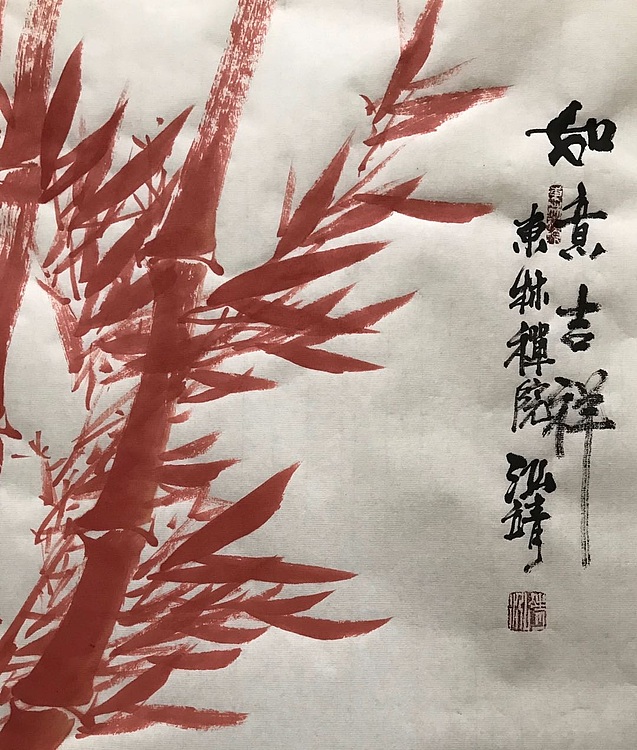 如意吉祥
東林禪院
泓靖